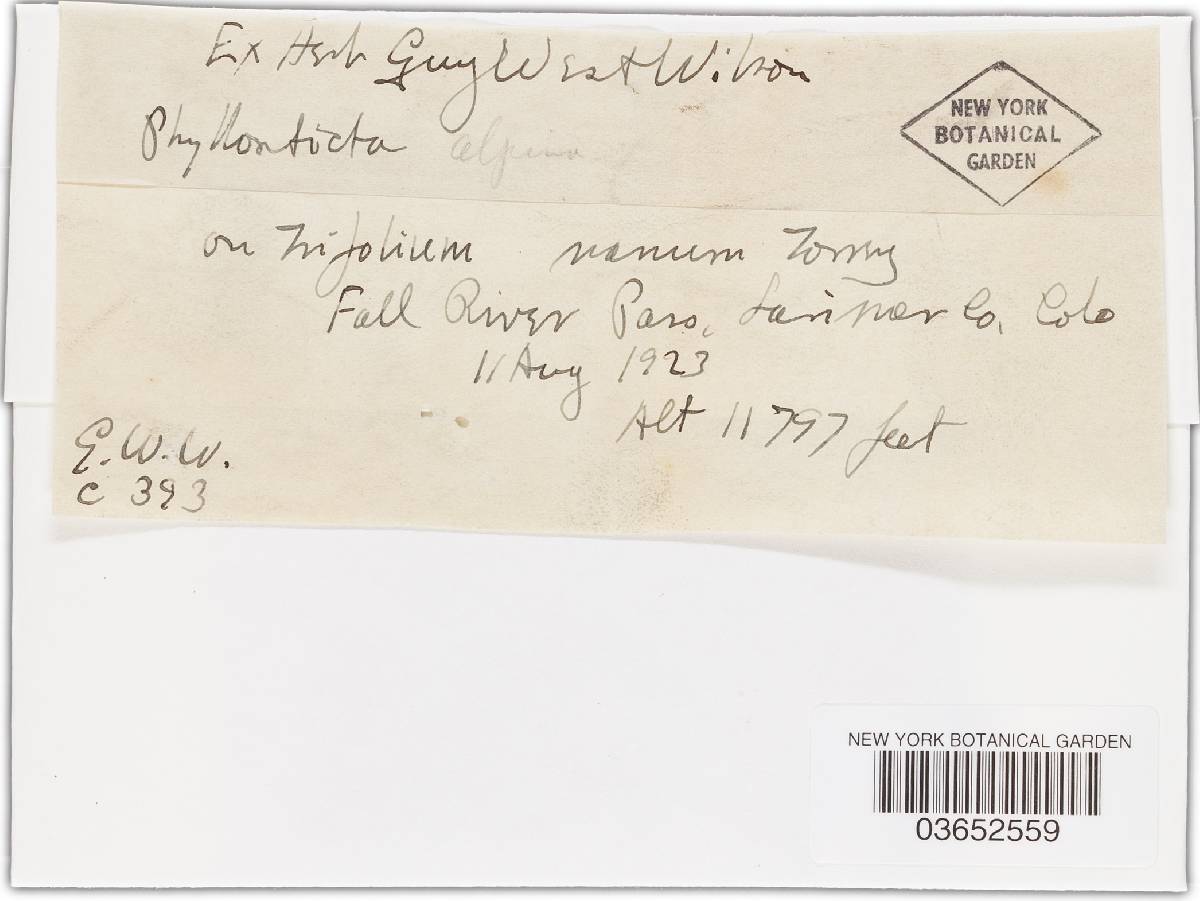 Ex Herb Guy West Wilson
Phyllosticta alpina
NEW YORK
BOTANICAL
GARDEN
on Trifolium nanum Torrey
Fall River Pass, Larimer Co, Colo
11 Aug 1923
Alt 11797 feet
G.W.W.
C 393
NEW YORK BOTANICAL GARDEN
03652559